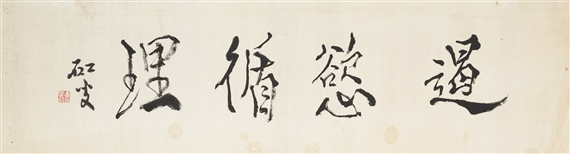 遏慾循理
矼叟